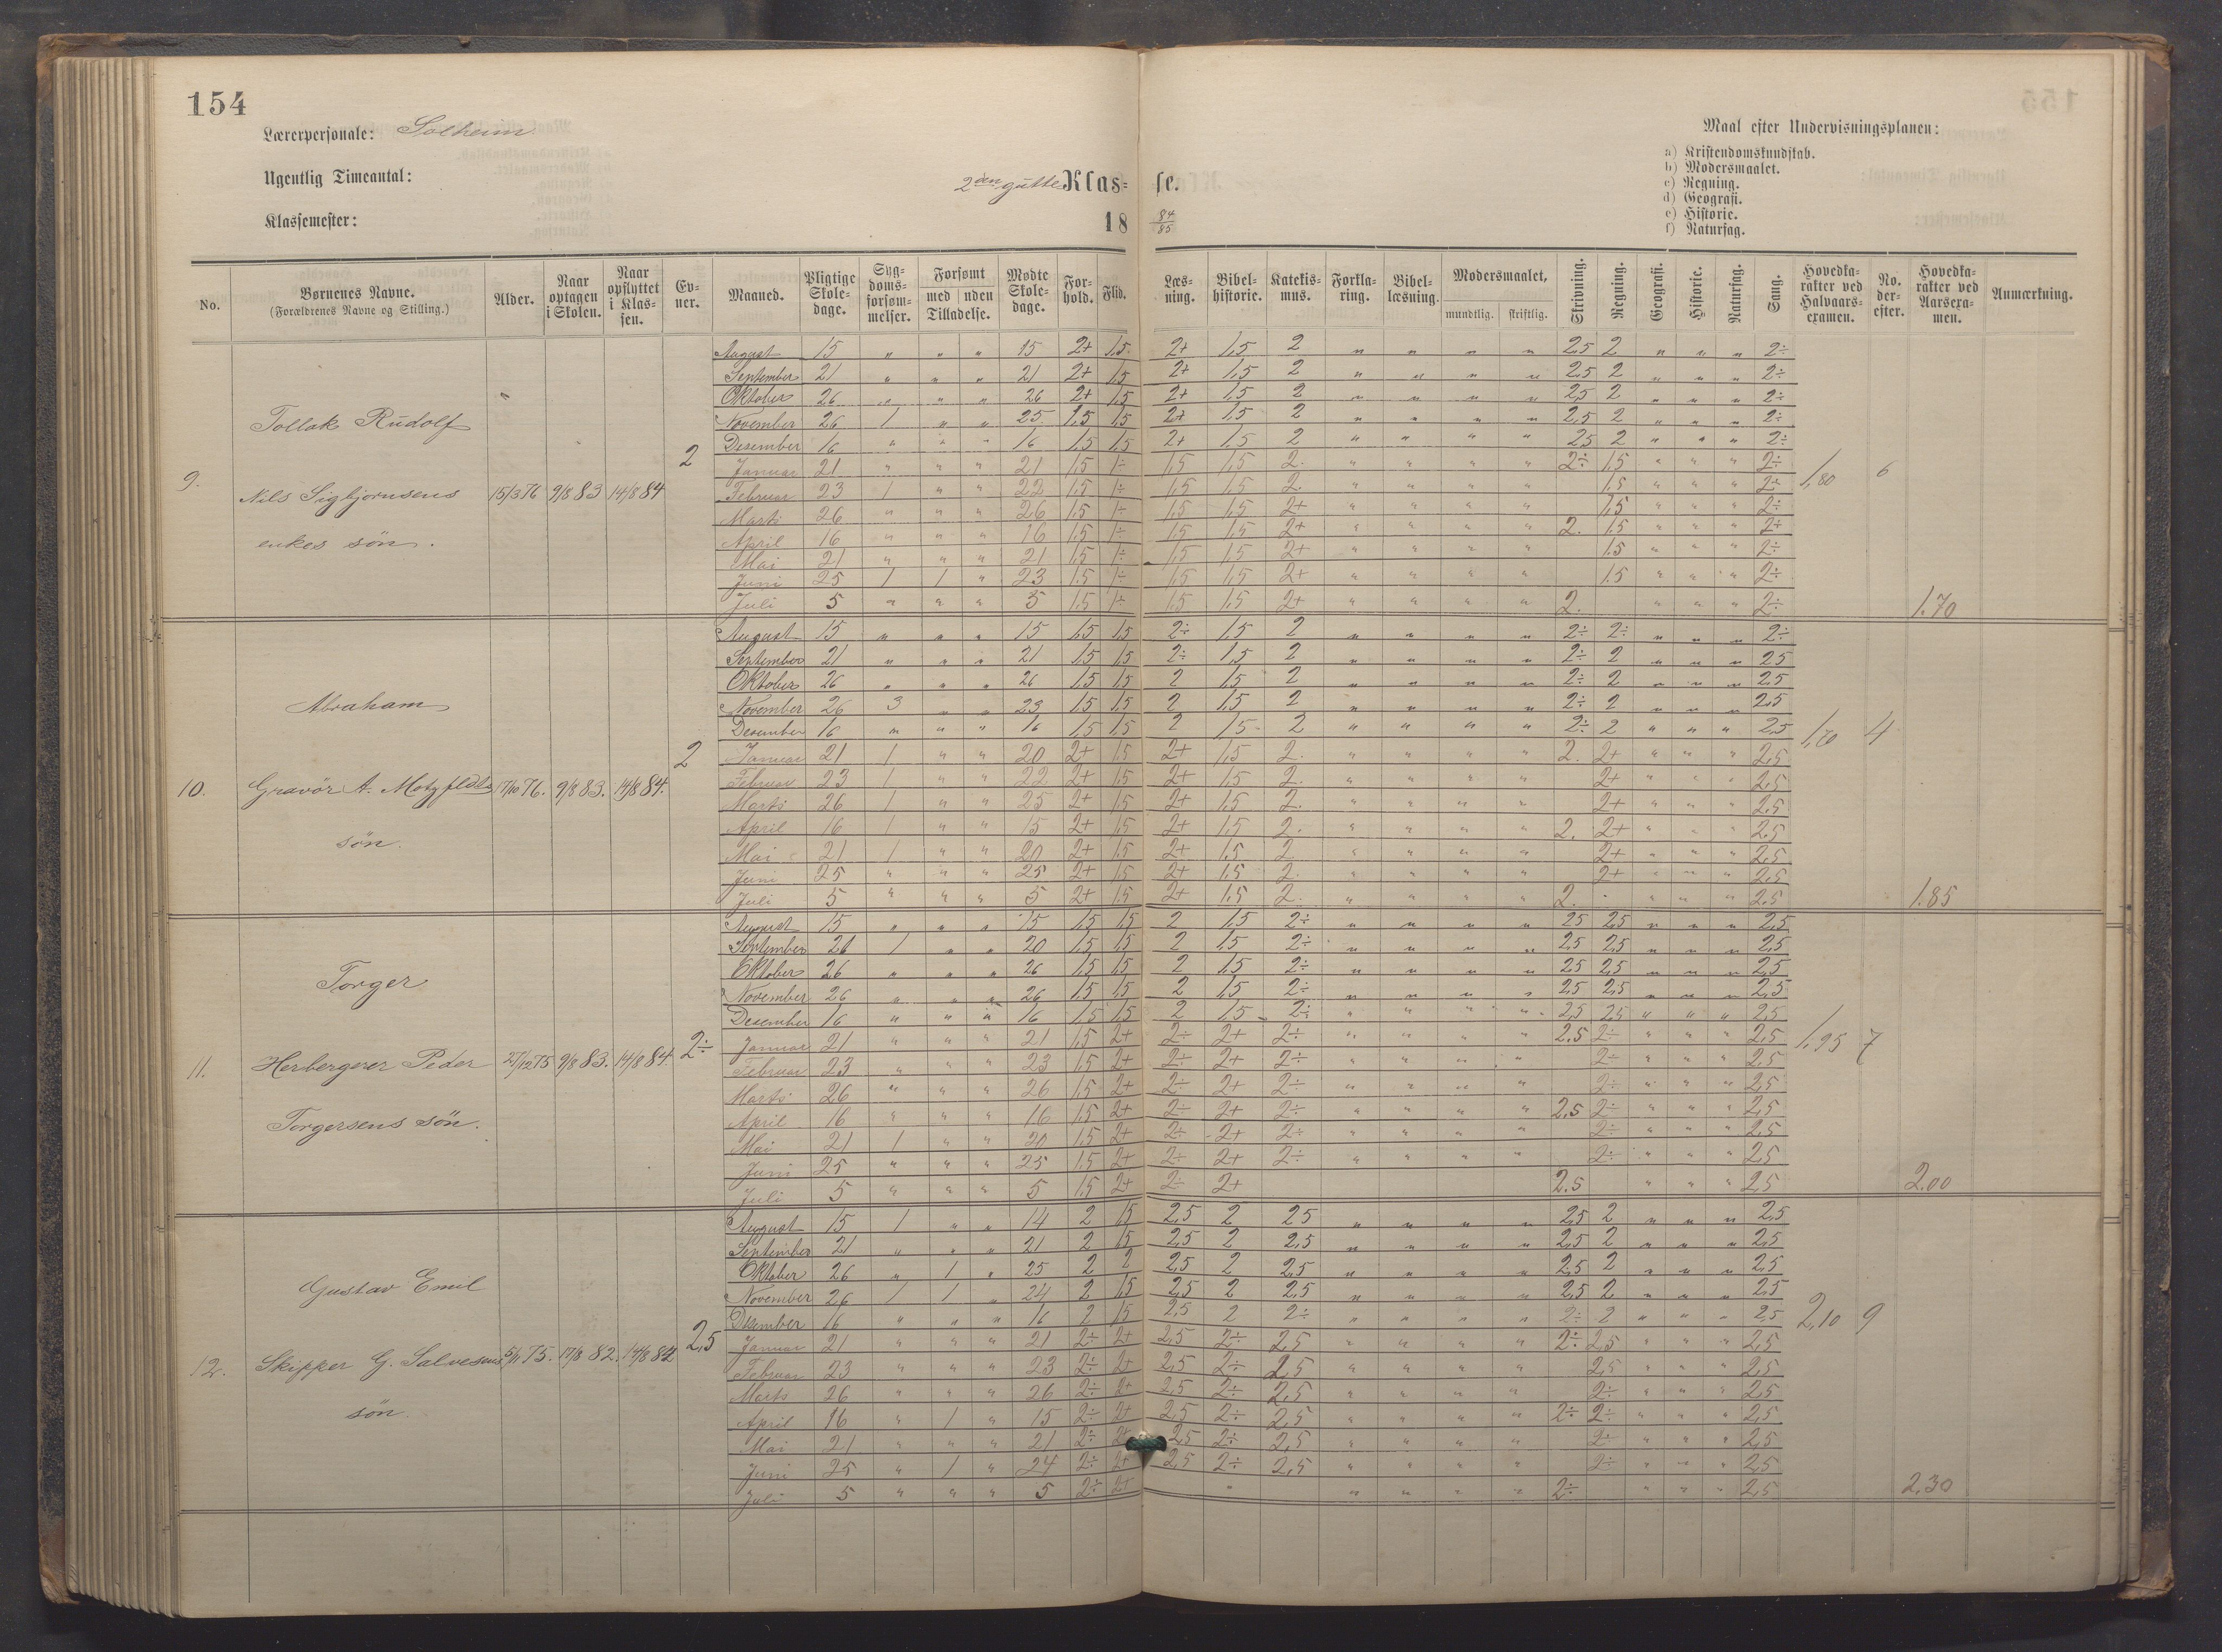 154
Lærerpersonale: Solheim
Ugentlig Timeantal:
Klassemester:
2den gutte Klasse.
18 84/85
Maal efter Undervisningsplanen:
a) Kristendomskundskab.
b) Modersmaalet.
c) Regning.
d) Geografi.
e) Historie.
f) Naturfag.
No. Børnenes Navne. (Forældrenes Navne og Stilling.) Alder. Naar optagen i Skolen. Naar opflyttet i Klassen. Evner. Maaned. Pligtige Skoledage. Sygdomsforsømmelser. Forsømt med uden Tilladelse. Mødte Skoledage. Forhold. Flid. Læsning. Bibelhistorie. Katekismus. Forklaring. Bibellæsning. Modersmaalet, mundtlig. skriftlig. Skrivning. Regning. Geografi. Historie. Naturfag. Sang. Hovedkarakter ved Halvaarsexamen. No. derefter. Hovedkarakter ved Aarsexamen. Anmærkning.
9. Tollak Rudolf
Nils Sigbjørnsens
enkes søn.
15/3 76 9/8 83 14/8 84 2
August 15 „ „ „ 15 2+ 1,5 2+ 1,5 2 „ „ „ „ 2,5 2 „ „ „ 2÷
September 21 „ „ „ 21 2+ 1,5 2+ 1,5 2 „ „ „ „ 2,5 2 „ „ „ 2÷
Oktober 26 „ „ „ 26 2+ 1,5 2+ 1,5 2 „ „ „ „ 2,5 2 „ „ „ 2÷
November 26 1 „ „ 25 1,5 1,5 2+ 1,5 2 „ „ „ „ 2,5 2 „ „ „ 2÷
Desember 16 „ „ „ 16 1,5 1,5 2+ 1,5 2 „ „ „ „ 2,5 2 „ „ „ 2÷
Januar 21 „ „ „ 21 1,5 1÷ 1,5 1,5 2. „ „ „ „ 2÷ 1,5 „ „ „ 2÷ 1,80 6
Februar 23 1 „ „ 22 1,5 1÷ 1,5 1,5 2. „ „ „ „ 1,5 „ „ „ 2÷
Marts 26 „ „ „ 26 1,5 1÷ 1,5 1,5 2+ „ „ „ „ 1,5 „ „ „ 2÷
April 16 „ „ „ 16 1,5 1÷ 1,5 1,5 2+ „ „ „ „ 2. 1,5 „ „ „ 2÷
Mai 21 „ „ „ 21 1,5 1÷ 1,5 1,5 2+ „ „ „ „ 1,5 „ „ „ 2÷
Juni 25 1 1 „ 23 1,5 1÷ 1,5 1,5 2+ „ „ „ „ 1,5 „ „ „ 2÷
Juli 5 „ „ „ 5 1,5 1÷ 1,5 1,5 2+ „ „ „ „ 2. „ „ „ 2÷ 1.70
10. Abraham
Gravör A. Motzfeldts
søn.
17/10 76. 9/8 83. 14/8 84. 2
August 15 „ „ „ 15 1,5 1,5 2÷ 1,5 2 „ „ „ „ 2÷ 2÷ „ „ „ 2÷
September 21 „ „ „ 21 1,5 1,5 2÷ 1,5 2 „ „ „ „ 2÷ 2 „ „ „ 2,5
Oktober 26 „ „ „ 26 1,5 1,5 2 1,5 2 „ „ „ „ 2÷ 2 „ „ „ 2,5
November 26 3 „ „ 23 1,5 1,5 2 1,5 2 „ „ „ „ 2÷ 2 „ „ „ 2,5
Desember 16 „ „ „ 16 1,5 1,5 2 1,5 2 „ „ „ „ 2÷ 2 „ „ „ 2,5 1,70 4
Januar 21 1 „ „ 20 2+ 1,5 2+ 1,5 2. „ „ „ „ 2. 2+ „ „ „ 2,5
Februar 23 1 „ „ 22 2+ 1,5 2+ 1,5 2. „ „ „ „ 2+ „ „ „ 2,5
Marts 26 1 „ „ 25 2+ 1,5 2+ 1,5 2. „ „ „ „ 2+ „ „ „ 2,5
April 16 1 „ „ 15 2+ 1,5 2+ 1,5 2. „ „ „ „ 2. 2+ „ „ „ 2,5
Mai 21 1 „ „ 20 2+ 1,5 2+ 1,5 2 „ „ „ „ 2+ „ „ „ 2,5
Juni 25 „ „ „ 25 2+ 1,5 2+ 1,5 2. „ „ „ „ 2+ „ „ „ 2,5
Juli 5 „ „ „ 5 2+ 1,5 2+ 1,5 2. „ „ „ „ 2. „ „ „ 2,5 1.85
11. Torger
Herbergerer Peder
Torgersens søn.
27/12 75 9/8 83. 14/8 84. 2÷
August 15 „ „ „ 15 1,5 1,5 2 1,5 2÷ „ „ „ „ 2,5 2,5 „ „ „ 2,5
September 21 1 „ „ 20 1,5 1,5 2 1,5 2÷ „ „ „ „ 2,5 2,5 „ „ „ 2,5
Oktober 26 „ „ „ 26 1,5 1,5 2 1,5 2÷ „ „ „ „ 2,5 2,5 „ „ „ 2,5
November 26 „ „ „ 26 1,5 1,5 2 1,5 2÷ „ „ „ „ 2,5 2,5 „ „ „ 2,5
Desember 16 „ „ „ 16 1,5 1,5 2 1,5 2÷ „ „ „ „ 2,5 2,5 „ „ „ 2,5
Januar 21 „ „ „ 21 1,5 2+ 2÷ 2+ 2÷ „ „ „ „ 2.5 2÷ „ „ „ 2,5 1,95 7
Februar 23 „ „ „ 23 1,5 2+ 2÷ 2+ 2÷ „ „ „ „ 2÷ „ „ „ 2,5
Marts 26 „ „ „ 26 1,5 2+ 2÷ 2+ 2÷ „ „ „ „ 2÷ „ „ „ 2,5
April 16 „ „ „ 16 1,5 2+ 2÷ 2+ 2÷ „ „ „ „ 2,5 2÷ „ „ „ 2,5
Mai 21 1 „ „ 20 1,5 2+ 2÷ 2+ 2÷ „ „ „ „ 2÷ „ „ „ 2,5
Juni 25 „ „ „ 25 1,5 2+ 2÷ 2+ 2÷ „ „ „ „ 2÷ „ „ „ 2,5
Juli 5 „ „ „ 5 1,5 2+ 2÷ 2+ 2.5 „ „ „ 2,5 2.00
12. Gustav Emil
Skipper G. Salvesens
søn.
5/1 75. 17/8 82. 14/8 84 2,5
August 15 1 „ „ 14 2 1,5 2,5 2 2,5 „ „ „ „ 2,5 2 „ „ „ 2,5
September 21 „ „ „ 21 2 1,5 2,5 2 2,5 „ „ „ „ 2,5 2 „ „ „ 2,5
Oktober 26 „ 1 „ 25 2 2 2,5 2 2,5 „ „ „ „ 2,5 2 „ „ „ 2,5
November 26 1 1 „ 24 2 1,5 2,5 2 2,5 „ „ „ „ 2,5 2 „ „ „ 2,5
Desember 16 „ „ „ 16 2 1,5 2,5 2 2÷ „ „ „ „ 2÷ 2 „ „ „ 2,5 2,10 9
Januar 21 „ „ „ 21 2÷ 2+ 2,5 2÷ 2,5 „ „ „ „ 2÷ 2,5 „ „ „ 2,5
Februar 23 „ „ „ 23 2÷ 2+ 2,5 2÷ 2,5 „ „ „ „ 2,5 „ „ „ 2,5
Marts 26 „ „ „ 26 2÷ 2+ 2,5 2÷ 2,5 „ „ „ „ 2÷ „ „ „ 2,5
April 16 „ 1 „ 15 2÷ 2+ 2,5 2÷ 2,5 „ „ „ „ 2÷ 2÷ „ „ „ 2,5
Mai 21 „ „ „ 21 2÷ 2+ 2,5 2÷ 2,5 „ „ „ „ 2÷ „ „ „ 2,5
Juni 25 „ 1 „ 24 2÷ 2+ 2,5 2÷ 2,5 „ „ „ „ 2÷ „ „ „ 2,5
Juli 5 „ „ „ 5 2÷ 2+ „ „ „ „ „ 2÷ „ „ „ 2,5 2,30